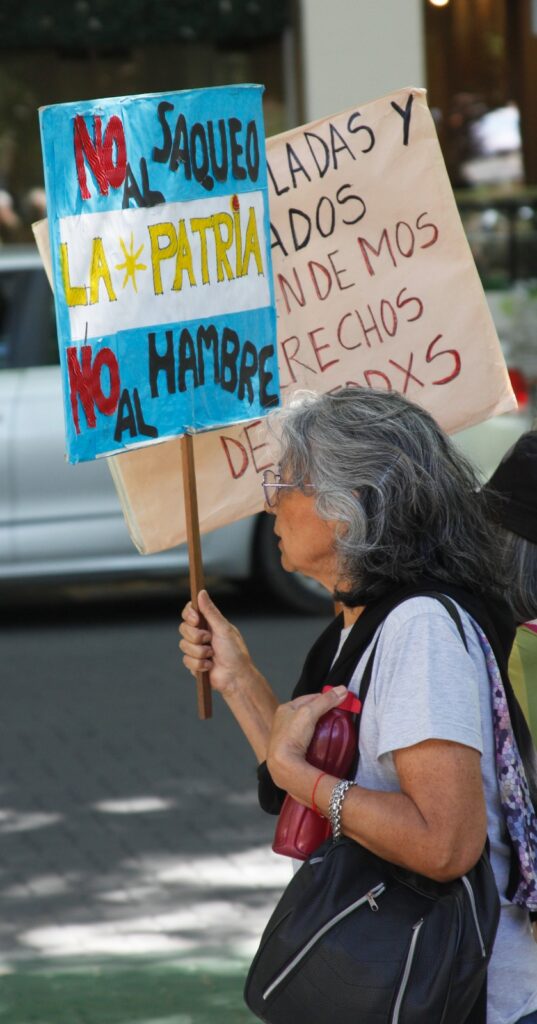 NO AL SAQUEO
LA PATRIA
NO AL HAMBRE
LADAS Y
ADOS
NDEMOS
RECHOS
DE